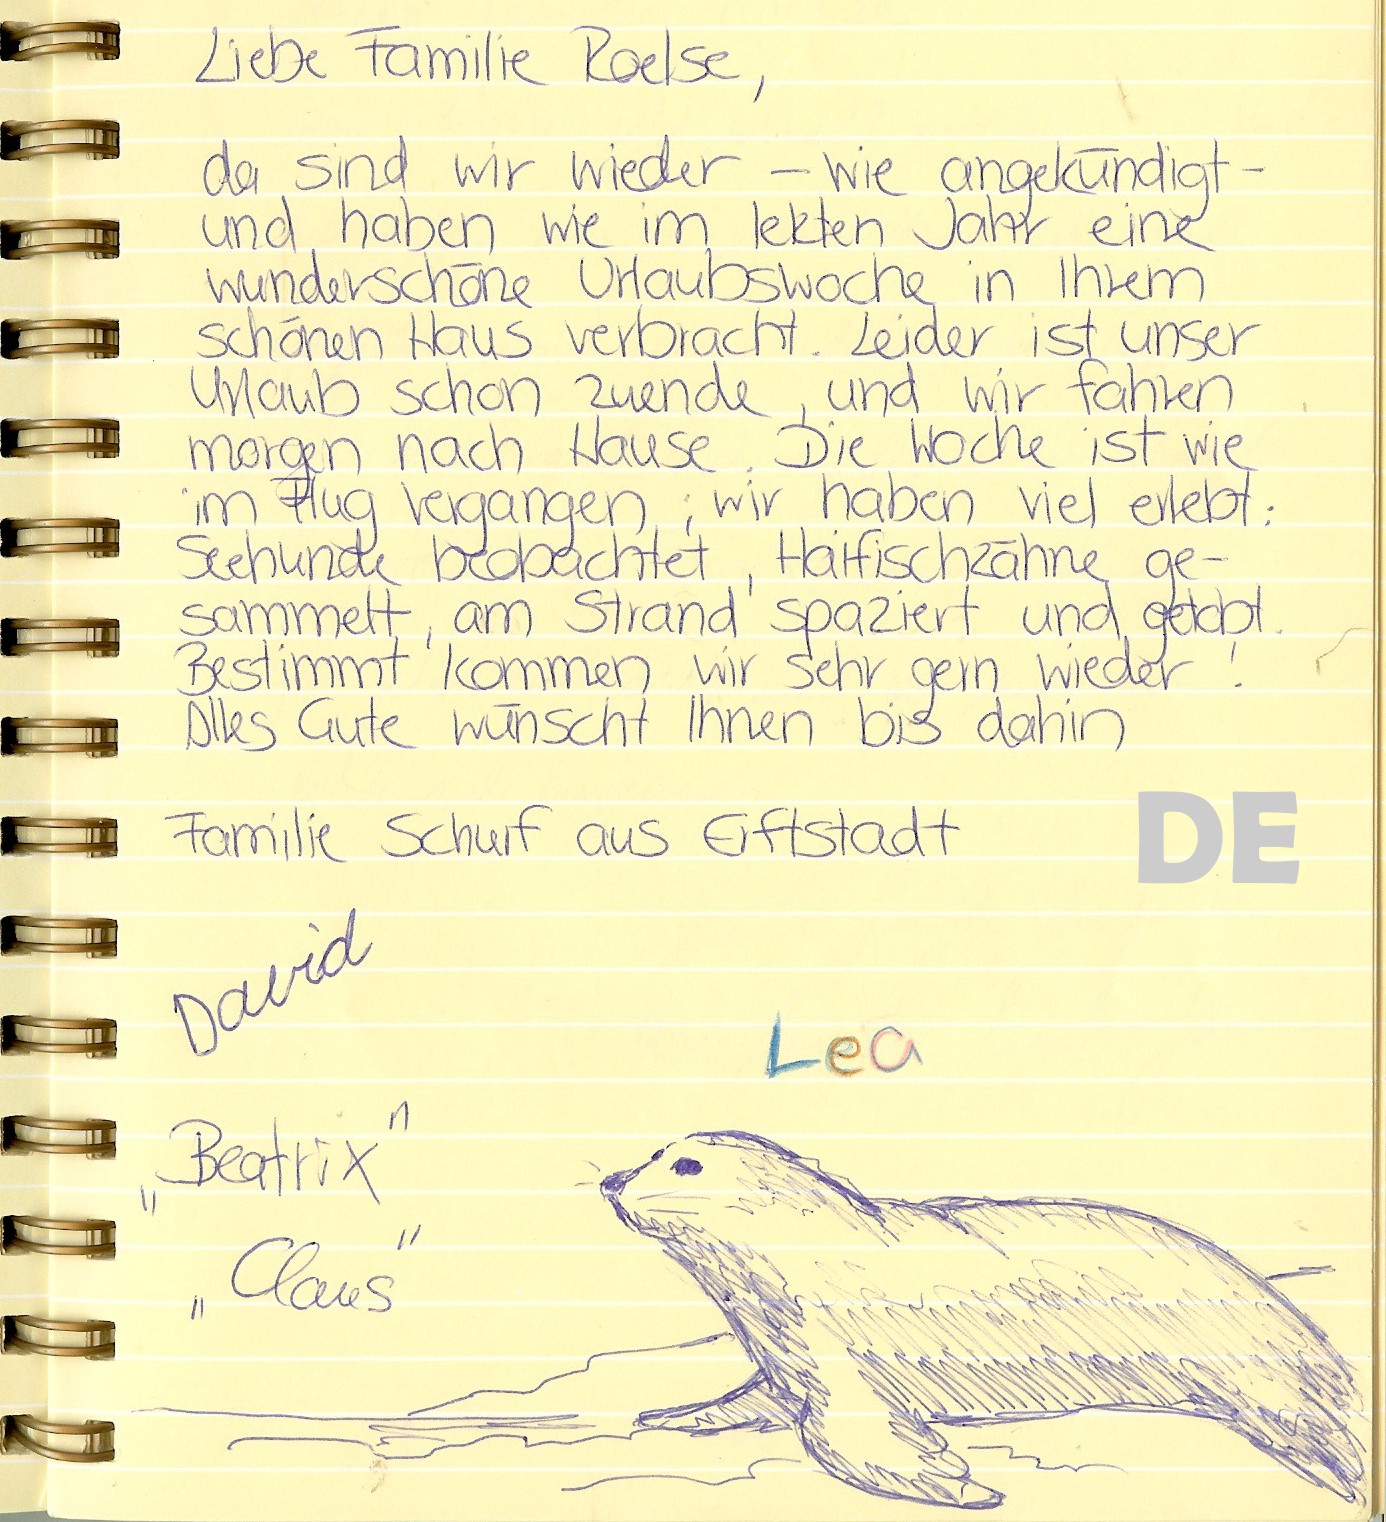 Liebe Familie Roelse,
da sind wir wieder – wie angekündigt –
und haben wie im letzten Jahr eine
wunderschöne Urlaubswoche in Ihrem
schönen Haus verbracht. Leider ist unser
Urlaub schon zuende, und wir fahren
morgen nach Hause. Die Woche ist wie
im Flug vergangen; wir haben viel erlebt:
Seehunde beobachtet, Haifischzähne ge-
sammelt, am Strand spaziert und getobt.
Bestimmt kommen wir sehr gern wieder!
Alles Gute wünscht Ihnen bis dahin
Familie Schurf aus Erftstadt
DE
David
Lea
„Beatrix"
„Claus"